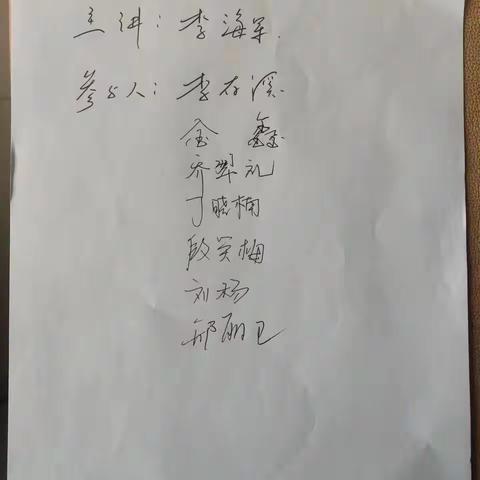 主讲：李海军.
参与人：李存溪
金鑫
乔翠礼
丁晓楠
段笑梅
刘杨
邴丽卫